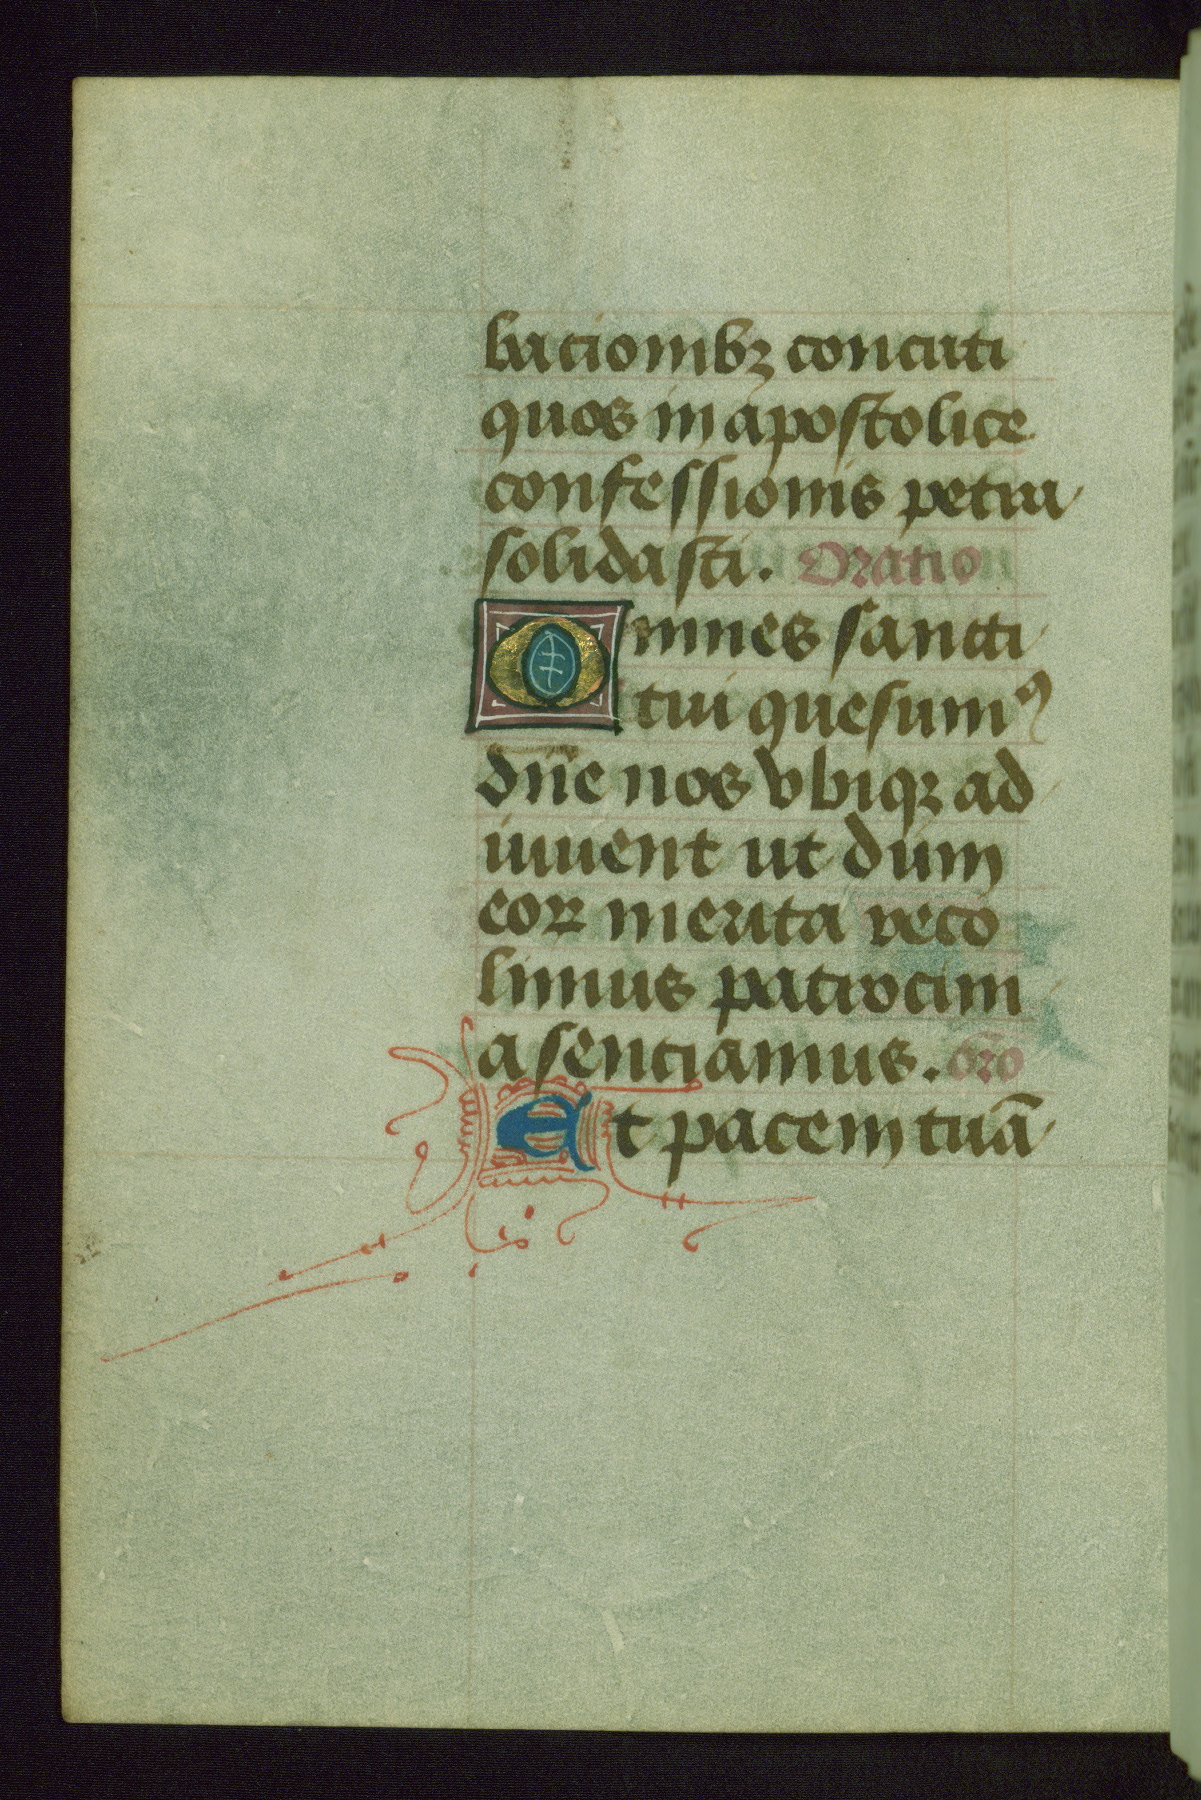 bacionibꝫ concuti
quos in apostolice
confessionis petra
solidasti. Oratio
Omnes sancti
tui quesumꝰ
dn̄e nos vbiqꝫ ad
iuuent ut dum
eoꝝ merita reco
limus patrocini
a sentiamus. or̄o
Et pacem tuā